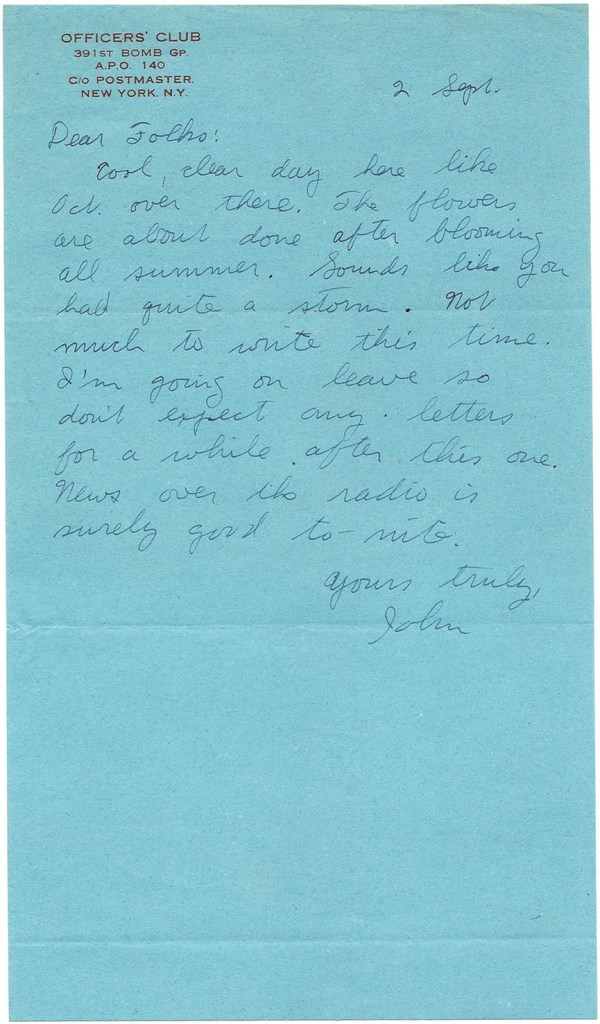 OFFICERS' CLUB
391ST BOMB GP.
A.P.O. 140
C/O POSTMASTER,
NEW YORK, N.Y.
2 Sept.
Dear Folks:
Cool, clear day here like
Oct. over there. The flowers
are about done after blooming
all summer. Sounds like you
had quite a storm. Not
much to write this time.
I'm going on leave so
don't expect any letters
for a while after this one.
News over the radio is
surely good to-nite.
Yours truly,
John